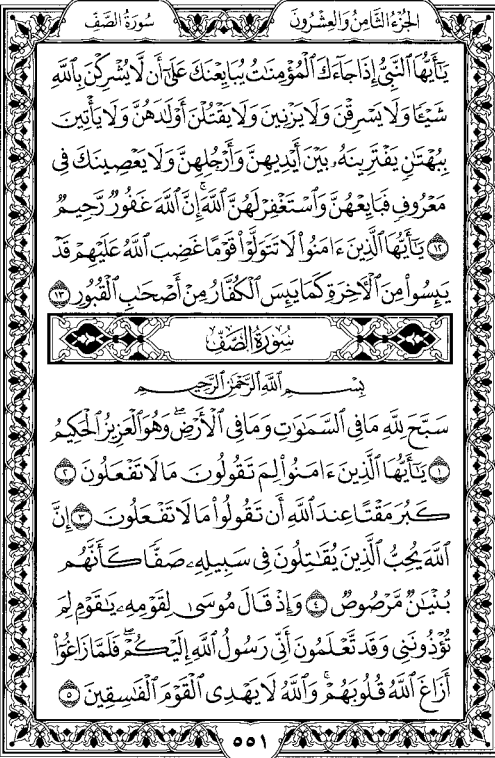 سُورَةُ الصَّفِّ
الجُزْءُ الثَّامِنُ وَالعِشْرُونَ
يَٰٓأَيُّهَا ٱلنَّبِيُّ إِذَا جَآءَكَ ٱلْمُؤْمِنَٰتُ يُبَايِعْنَكَ عَلَىٰٓ أَن لَّا يُشْرِكْنَ بِٱللَّهِ
شَيْـًٔا وَلَا يَسْرِقْنَ وَلَا يَزْنِينَ وَلَا يَقْتُلْنَ أَوْلَٰدَهُنَّ وَلَا يَأْتِينَ
بِبُهْتَٰنٍ يَفْتَرِينَهُۥ بَيْنَ أَيْدِيهِنَّ وَأَرْجُلِهِنَّ وَلَا يَعْصِينَكَ فِى
مَعْرُوفٍ فَبَايِعْهُنَّ وَٱسْتَغْفِرْ لَهُنَّ ٱللَّهَ ۚ إِنَّ ٱللَّهَ غَفُورٌ رَّحِيمٌ
١٢ يَٰٓأَيُّهَا ٱلَّذِينَ ءَامَنُوا۟ لَا تَتَوَلَّوْا۟ قَوْمًا غَضِبَ ٱللَّهُ عَلَيْهِمْ قَدْ
يَئِسُوا۟ مِنَ ٱلْـَٔاخِرَةِ كَمَا يَئِسَ ٱلْكُفَّارُ مِنْ أَصْحَٰبِ ٱلْقُبُورِ ١٣
سُورَةُ الصَّفِّ
بِسْمِ ٱللَّهِ ٱلرَّحْمَٰنِ ٱلرَّحِيمِ
سَبَّحَ لِلَّهِ مَا فِى ٱلسَّمَٰوَٰتِ وَمَا فِى ٱلْأَرْضِ ۖ وَهُوَ ٱلْعَزِيزُ ٱلْحَكِيمُ
١ يَٰٓأَيُّهَا ٱلَّذِينَ ءَامَنُوا۟ لِمَ تَقُولُونَ مَا لَا تَفْعَلُونَ ٢
كَبُرَ مَقْتًا عِندَ ٱللَّهِ أَن تَقُولُوا۟ مَا لَا تَفْعَلُونَ ٣ إِنَّ
ٱللَّهَ يُحِبُّ ٱلَّذِينَ يُقَٰتِلُونَ فِى سَبِيلِهِۦ صَفًّا كَأَنَّهُم
بُنْيَٰنٌ مَّرْصُوصٌ ٤ وَإِذْ قَالَ مُوسَىٰ لِقَوْمِهِۦ يَٰقَوْمِ لِمَ
تُؤْذُونَنِى وَقَد تَّعْلَمُونَ أَنِّى رَسُولُ ٱللَّهِ إِلَيْكُمْ ۖ فَلَمَّا زَاغُوٓا۟
أَزَاغَ ٱللَّهُ قُلُوبَهُمْ ۚ وَٱللَّهُ لَا يَهْدِى ٱلْقَوْمَ ٱلْفَٰسِقِينَ ٥
٥٥١